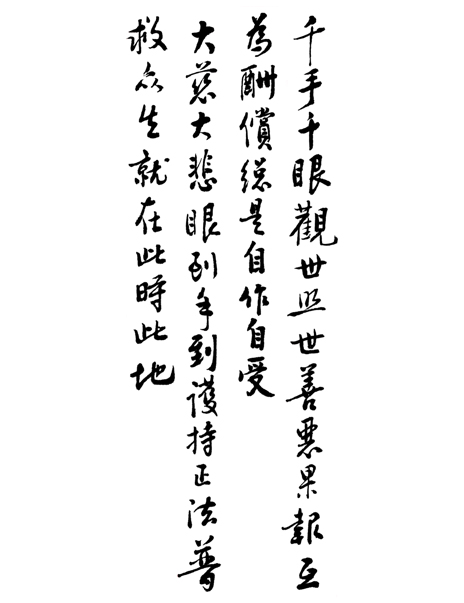 千手千眼觀世照世善惡果報互
為酬償總是自作自受
大慈大悲眼到手到護持正法普
救众生就在此時此地